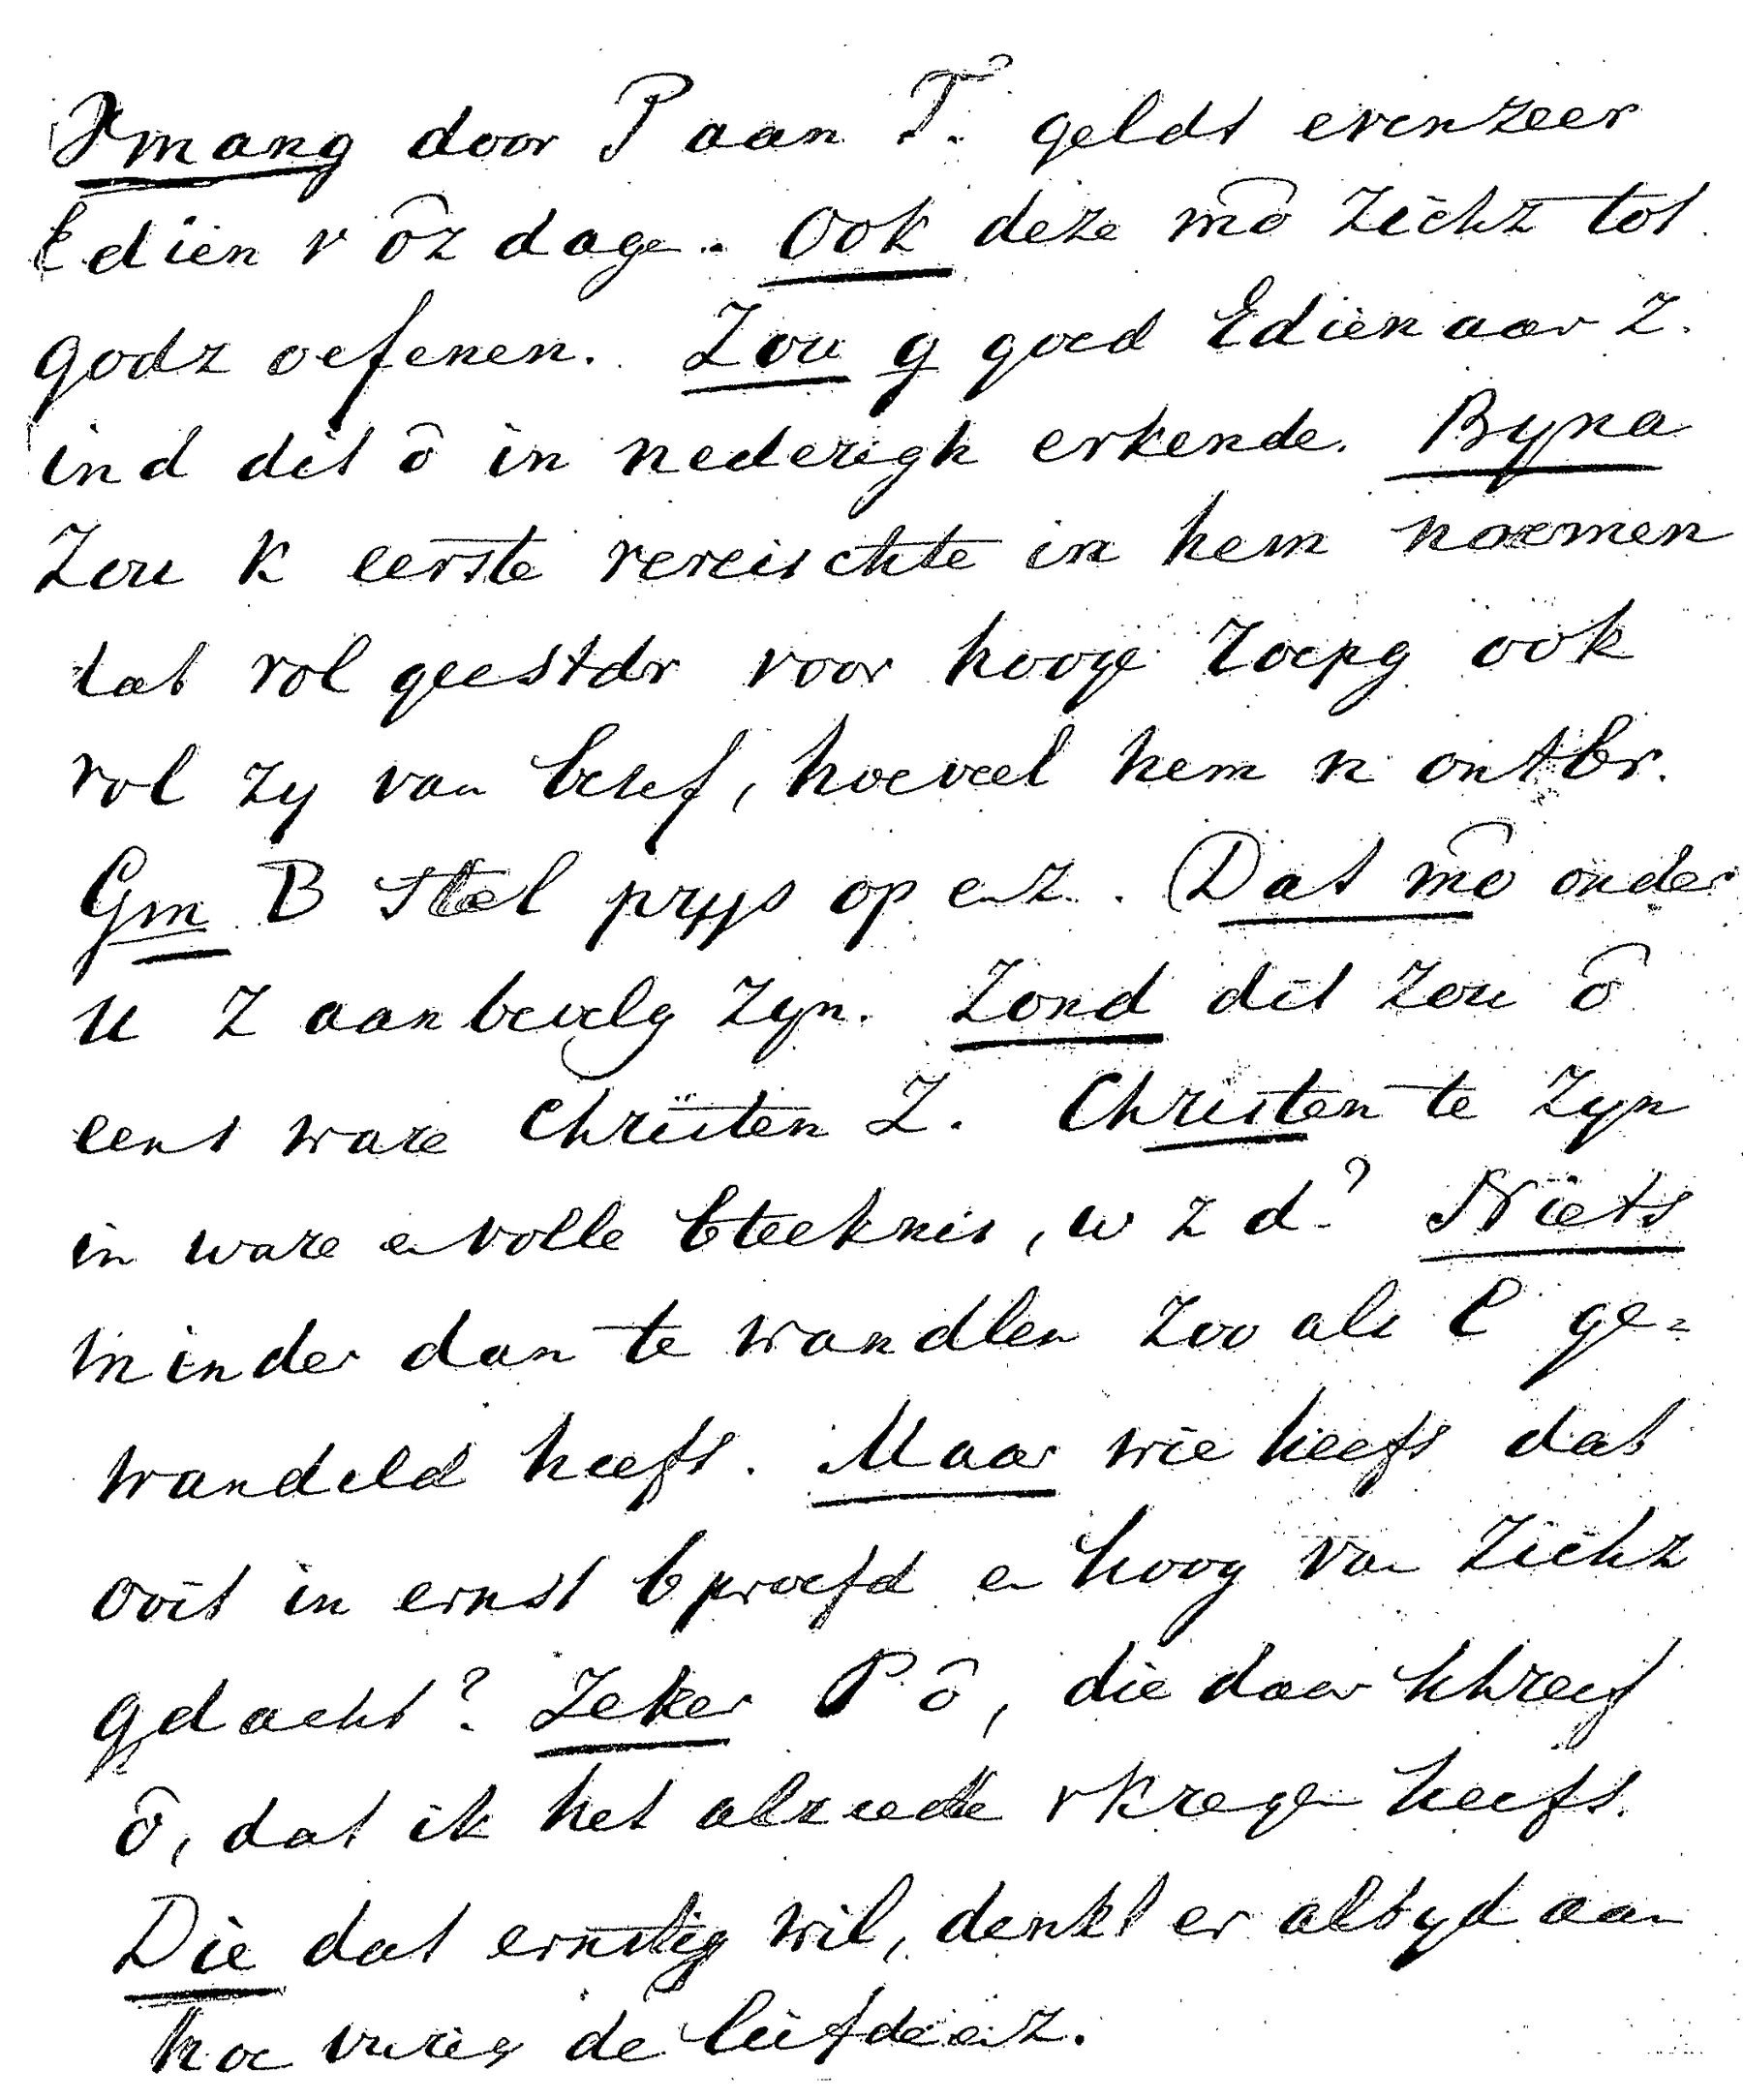 Vmang door P aan T. geldt evenzeer
Edien v ôz dage. Ook deze mô zichz tot
godz oefenen. Zou g goed Edienaar Z.
ind dit ô in nederigh erkende. Byna
Zou k eerste vereischte in hem noemen
dat vol geestdr voor hooge roepg ook
vol zy van besef, hoeveel hem n ontbr.
Gm B Stel prys op enz. Dat mô onder
u Z aanbevelg zyn. Zond dit zou ô
eens ware Christen Z. Christen te zyn
in ware en volle bteeknis, w z d? Niets
minder dan te wandlen zoo als C ge=
wandeld heeft. Maar wie heeft dat
ooit in ernst bproefd en hoog van zichz
gdacht? Zeker P ô, die daar schreef
ô, dat ik het alreede vkregen heeft.
Die dat ernstig wil, denkt er altyd aan
hoe vurig de liefde enz.